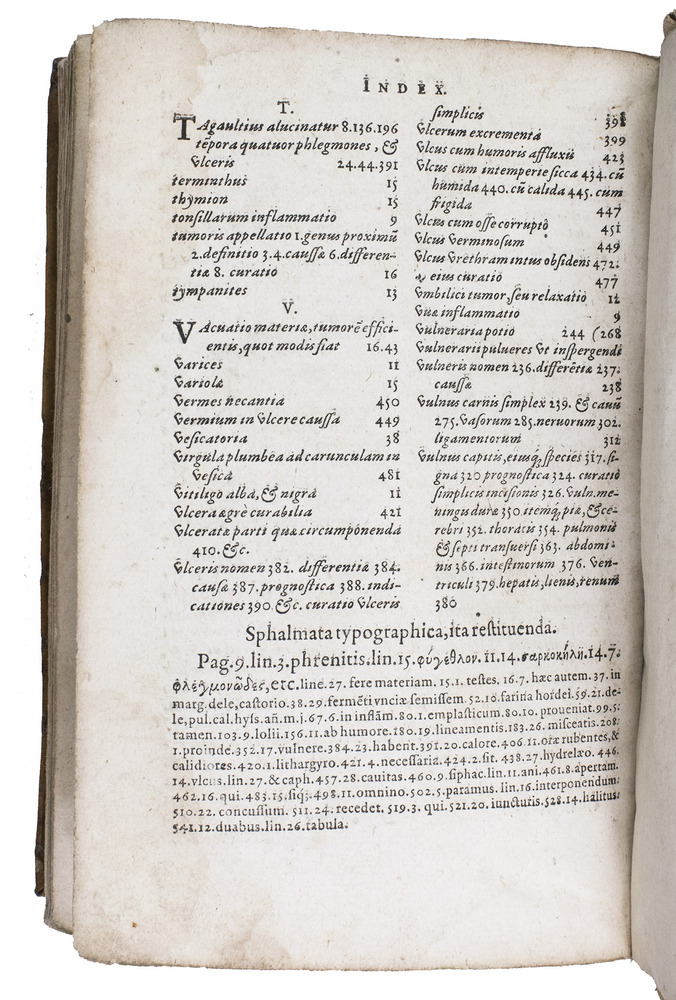 INDEX.
T.
TAgaultius alucinatur 8.136.196
tēpora quatuor phlegmones, &
vlceris 24.44.391
terminthus 15
thymion 15
tonsillarum inflammatio 9
tumoris appellatio 1. genus proximū
2. definitio 3.4. caussæ 6. differen-
tiæ 8. curatio 16
tympanites 13
V.
VAcuatio materiæ, tumorē effici-
entis, quot modis fiat 16.43
varices 11
variolæ 15
vermes necantia 450
vermium in vlcere caussa 449
vesicatoria 38
virgula plumbea ad carunculam in
vesica 481
vitiligo alba, & nigra 11
vlcera ægrè curabilia 421
vlceratæ parti quæ circumponenda
410. &c.
vlceris nomen 382. differentiæ 384.
causæ 387. prognostica 388. indi-
cationes 390. &c. curatio vlceris
simplicis 398
vlcerum excrementa 399
vlcus cum humoris affluxu 423
vlcus cum intemperie sicca 434. cū
humida 440. cū calida 445. cum
frigida 447
vlcus cum osse corrupto 451
vlcus verminosum 449
vlcus vrethram intus obsidens 472.
& eius curatio 477
vmbilici tumor, seu relaxatio 12
vuæ inflammatio 9
vulneraria potio 244 (268
vulnerarii pulueres vt inspergendi
vulneris nomen 236. differētiæ 237.
caussæ 238
vulnus carnis simplex 239. & cauū
275. vasorum 285. neruorum 302.
ligamentorum 312
vulnus capitis, eiusq; species 317. si-
gna 320 prognostica 324. curatio
simplicis incisionis 326. vuln. me-
ningis duræ 350. itemq; piæ, & ce-
rebri 352. thoracis 354. pulmonis
& septi transuersi 363. abdomi-
nis 366. intestinorum 376. ven-
triculi 379. hepatis, lienis, renum
380
Sphalmata typographica, ita restituenda.
Pag. 9. lin. 3. phrenitis. lin. 15. φύγεθλον. 11.14. σαρκοκήλη. 14.7.
φλεγμονῶδες, etc. line. 27. fere materiam. 15.1. testes. 16.7. hæc autem. 37. in
marg. dele, castorio. 38.29. fermēti vnciæ semissem. 52.10. farina hordei. 59.21. de-
le, pul. cal. hyss. añ. m. j. 67.6. in inflām. 80.1. emplasticum. 80.10. proueniat. 99.5.
tamen. 103.9. lolii. 156.11. ab humore. 180.19. lineamentis. 183.26. misceatis. 208.
1. proinde. 352.17. vulnere. 384.23. habent. 391.20. calore. 406.11. oræ rubentes, &
calidiores. 420.1. lithargyro. 421.4. necessaria. 424.2. sit. 438.27. hydrelæo. 446.
14. vlcus. lin. 27. & caph. 457.28. cauitas. 460.9. siphac. lin. 11. ani. 461.8. apertam.
462.16. qui. 483.15. siq;. 498.11. omnino. 502.5. paramus. lin. 16. interponendum.
510.22. concussum. 511.24. recedet. 519.3. qui. 521.20. iuncturis. 528.14. halitus.
541.12. duabus. lin. 26. tabula.